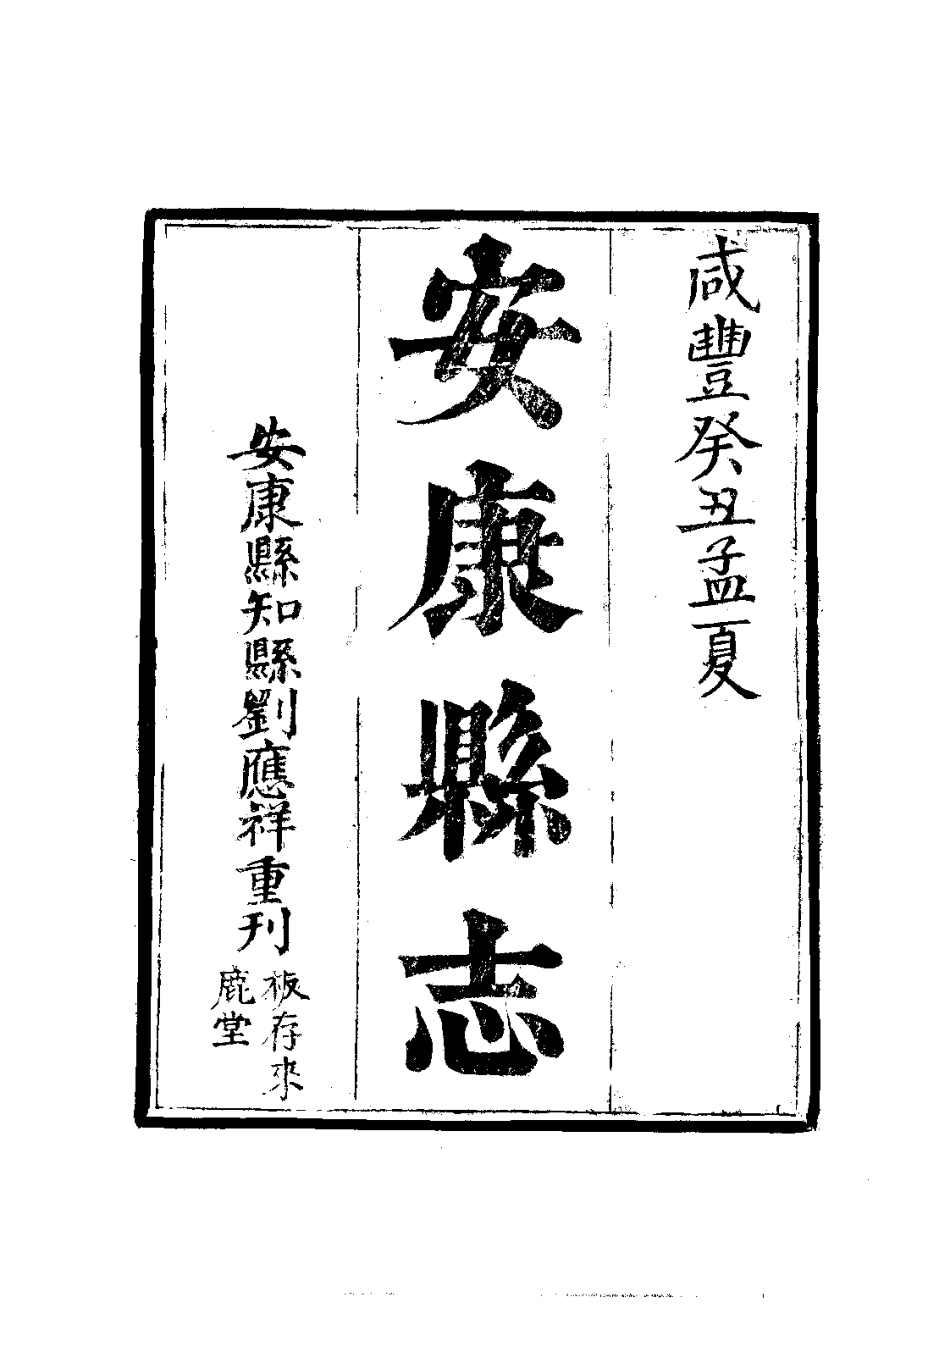 咸豐癸丑孟夏
安康縣志
安康縣知縣劉應祥重刊
板存來
鹿堂